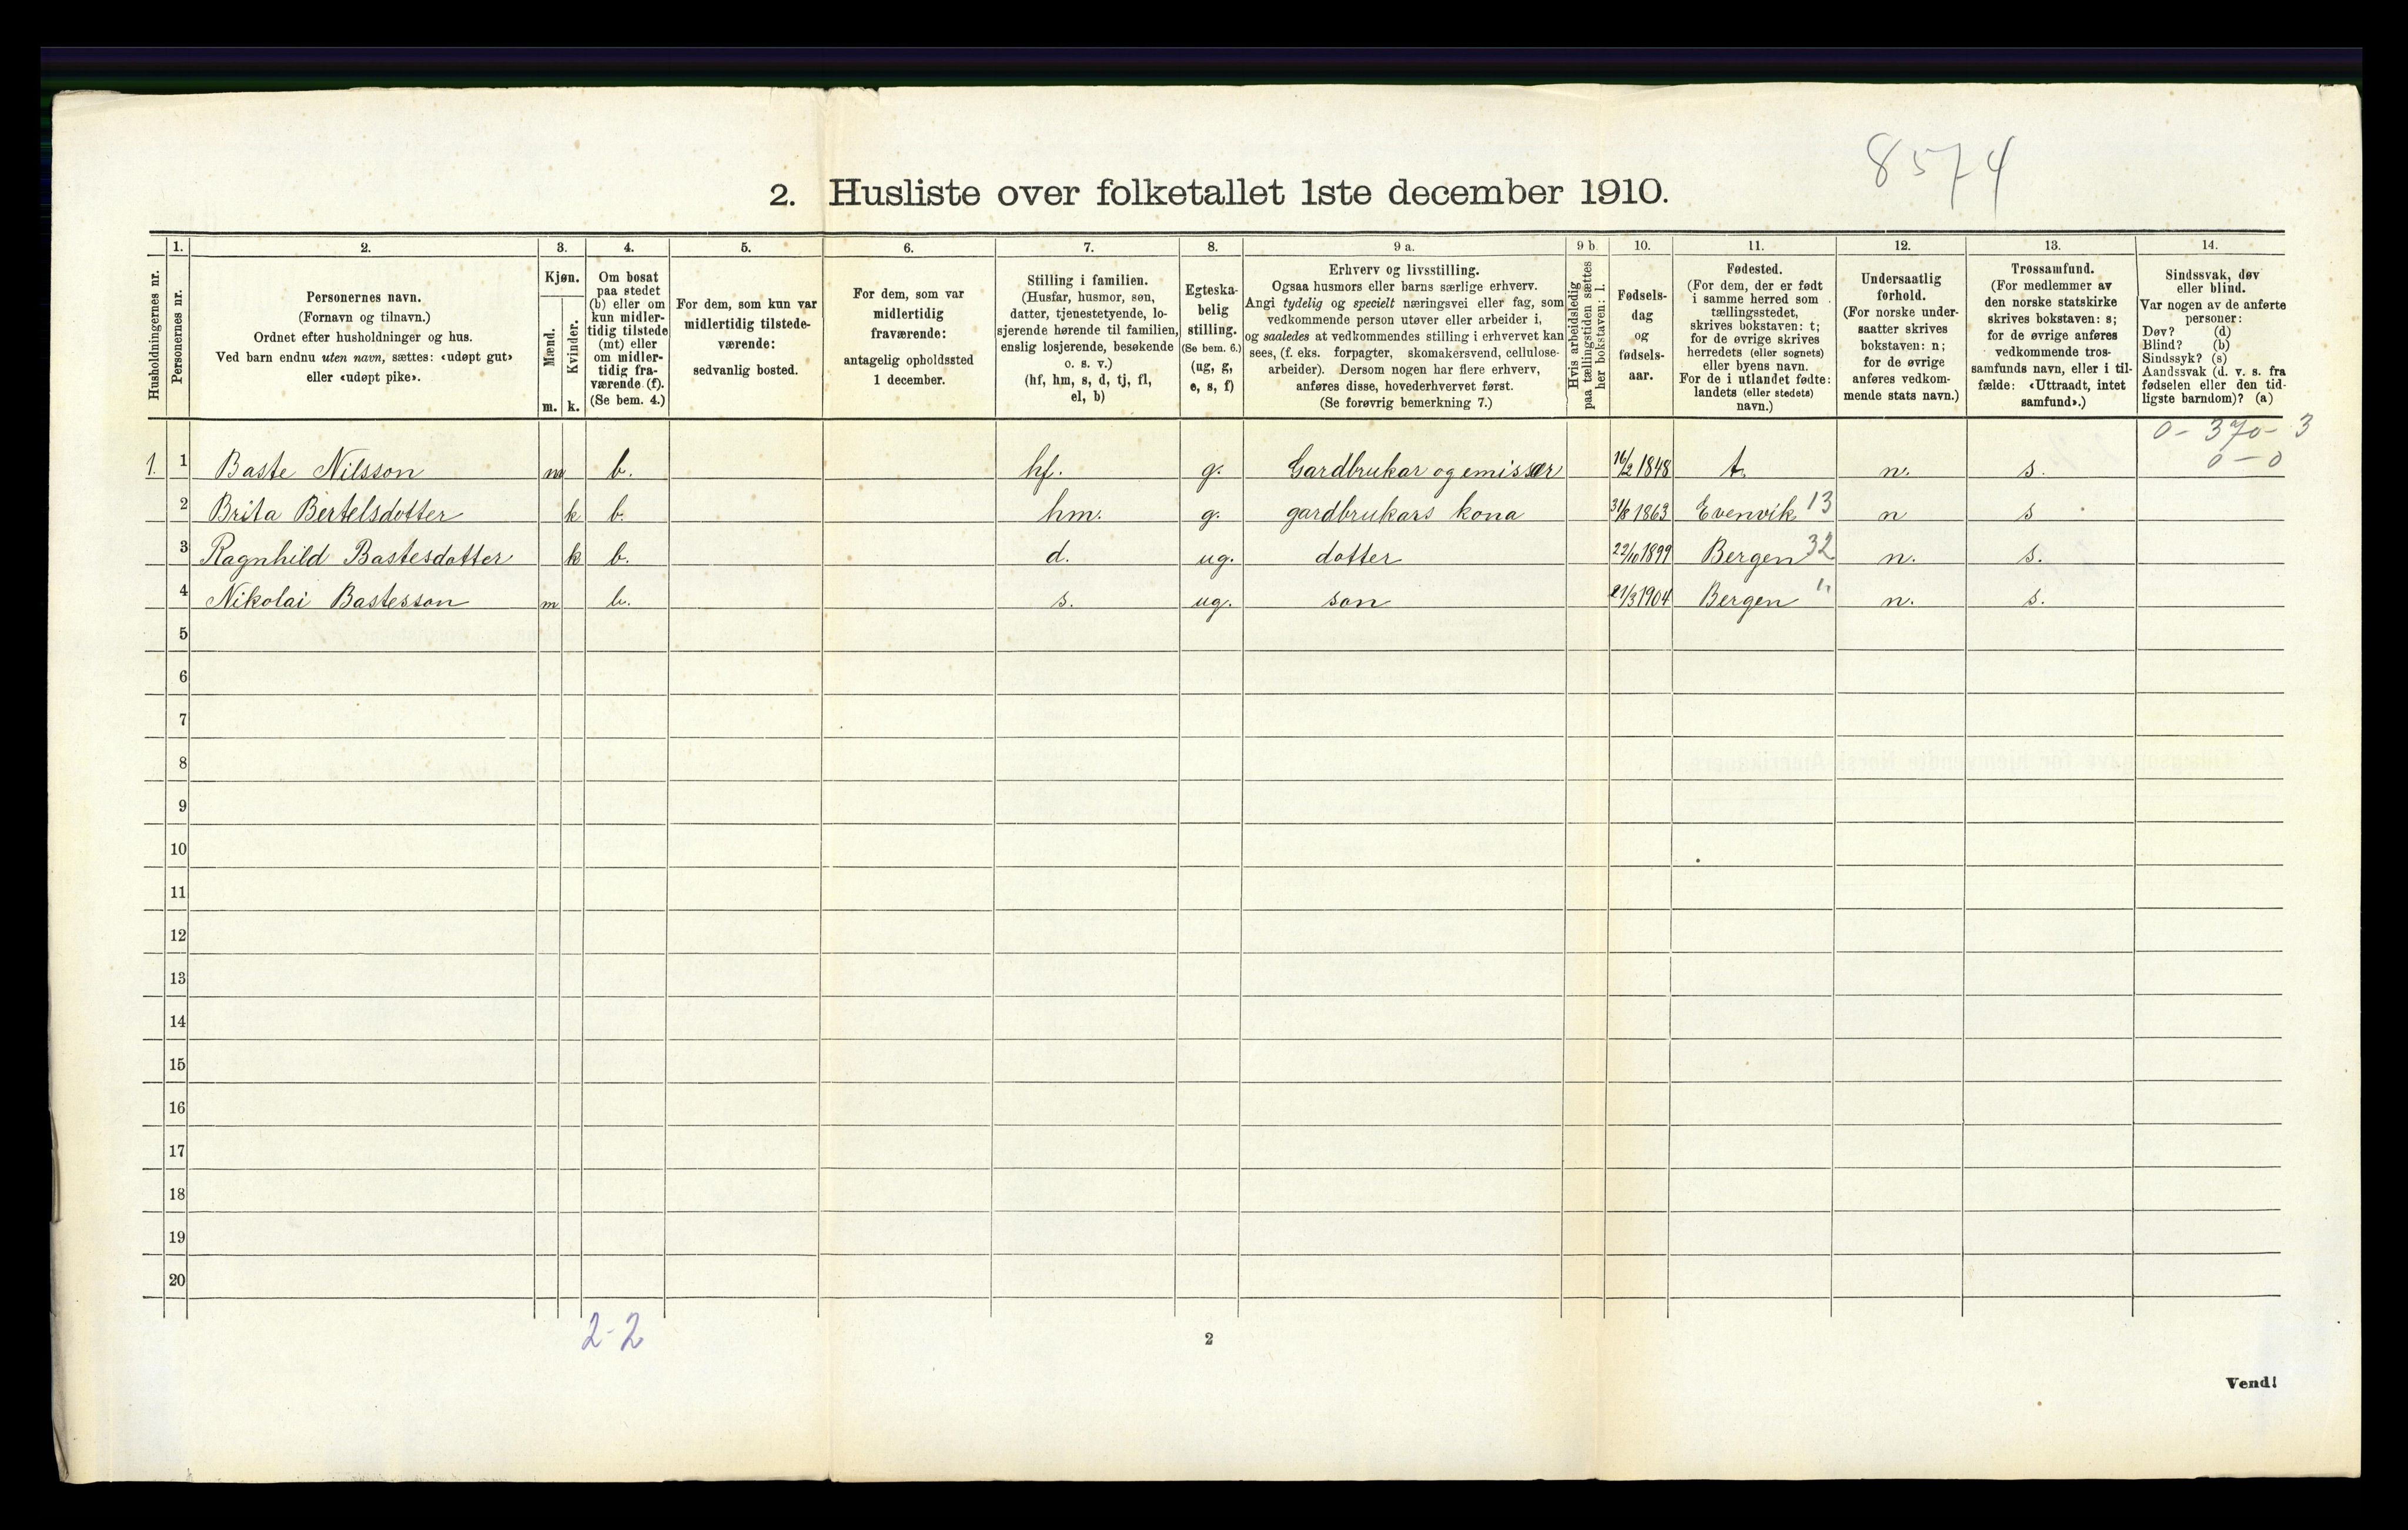 8574
2. Husliste over folketallet 1ste december 1910.
1. 2. 3. 4. 5. 6. 7. 8. 9 a. 9 b. 10. 11. 12. 13. 14.
Husholdningernes nr.
Personernes nr.
Personernes navn.
(Fornavn og tilnavn.)
Ordnet efter husholdninger og hus.
Ved barn endnu uten navn, sættes: «udøpt gut»
eller «udøpt pike».
Kjøn.
Mænd.
Kvinder.
m. k.
Om bosat
paa stedet
(b) eller om
kun midler-
tidig tilstede
(mt) eller
om midler-
tidig fra-
værende (f).
(Se bem. 4.)
For dem, som kun var
midlertidig tilstede-
værende:
sedvanlig bosted.
For dem, som var
midlertidig
fraværende:
antagelig opholdssted
1 december.
Stilling i familien.
(Husfar, husmor, søn,
datter, tjenestetyende, lo-
sjerende hørende til familien,
enslig losjerende, besøkende
o. s. v.)
(hf, hm, s, d, tj, fl,
el, b)
Egteska-
belig
stilling.
(Se bem. 6.)
(ug, g,
e, s, f)
Erhverv og livsstilling.
Ogsaa husmors eller barns særlige erhverv.
Angi tydelig og specielt næringsvei eller fag, som
vedkommende person utøver eller arbeider i,
og saaledes at vedkommendes stilling i erhvervet kan
sees, (f. eks. forpagter, skomakersvend, cellulose-
arbeider). Dersom nogen har flere erhverv,
anføres disse, hovederhvervet først.
(Se forøvrig bemerkning 7.)
Hvis arbeidsledig
paa tællingstiden sættes
her bokstaven: l.
Fødsels-
dag
og
fødsels-
aar.
Fødested.
(For dem, der er født
i samme herred som
tællingsstedet,
skrives bokstaven: t;
for de øvrige skrives
herredets (eller sognets)
eller byens navn.
For de i utlandet fødte:
landets (eller stedets)
navn.)
Undersaatlig
forhold.
(For norske under-
saatter skrives
bokstaven: n;
for de øvrige
anføres vedkom-
mende stats navn.)
Trossamfund.
(For medlemmer av
den norske statskirke
skrives bokstaven: s;
for de øvrige anføres
vedkommende tros-
samfunds navn, eller i til-
fælde: «Uttraadt, intet
samfund».)
Sindssvak, døv
eller blind.
Var nogen av de anførte
personer:
Døv? (d)
Blind? (b)
Sindssyk? (s)
Aandssvak (d. v. s. fra
fødselen eller den tid-
ligste barndom)? (a)
0 - 370 - 3
0 - 0
1. 1 Baste Nilsson m b. hf. g. Gardbrukar og emissær 16/2 1848 t. n. s.
2 Brita Bertelsdotter k b. hm. g. gardbrukars kona 31/8 1863 Evenvik 13 n s
3 Ragnhild Bastesdotter k b. d. ug. dotter 22/10 1899 Bergen 32 n. s.
4 Nikolai Bastesson m b. s. ug. son 21/3 1904 Bergen " n. s.
5
6
7
8
9
10
11
12
13
14
15
16
17
18
19
20
2-2
2
Vend!